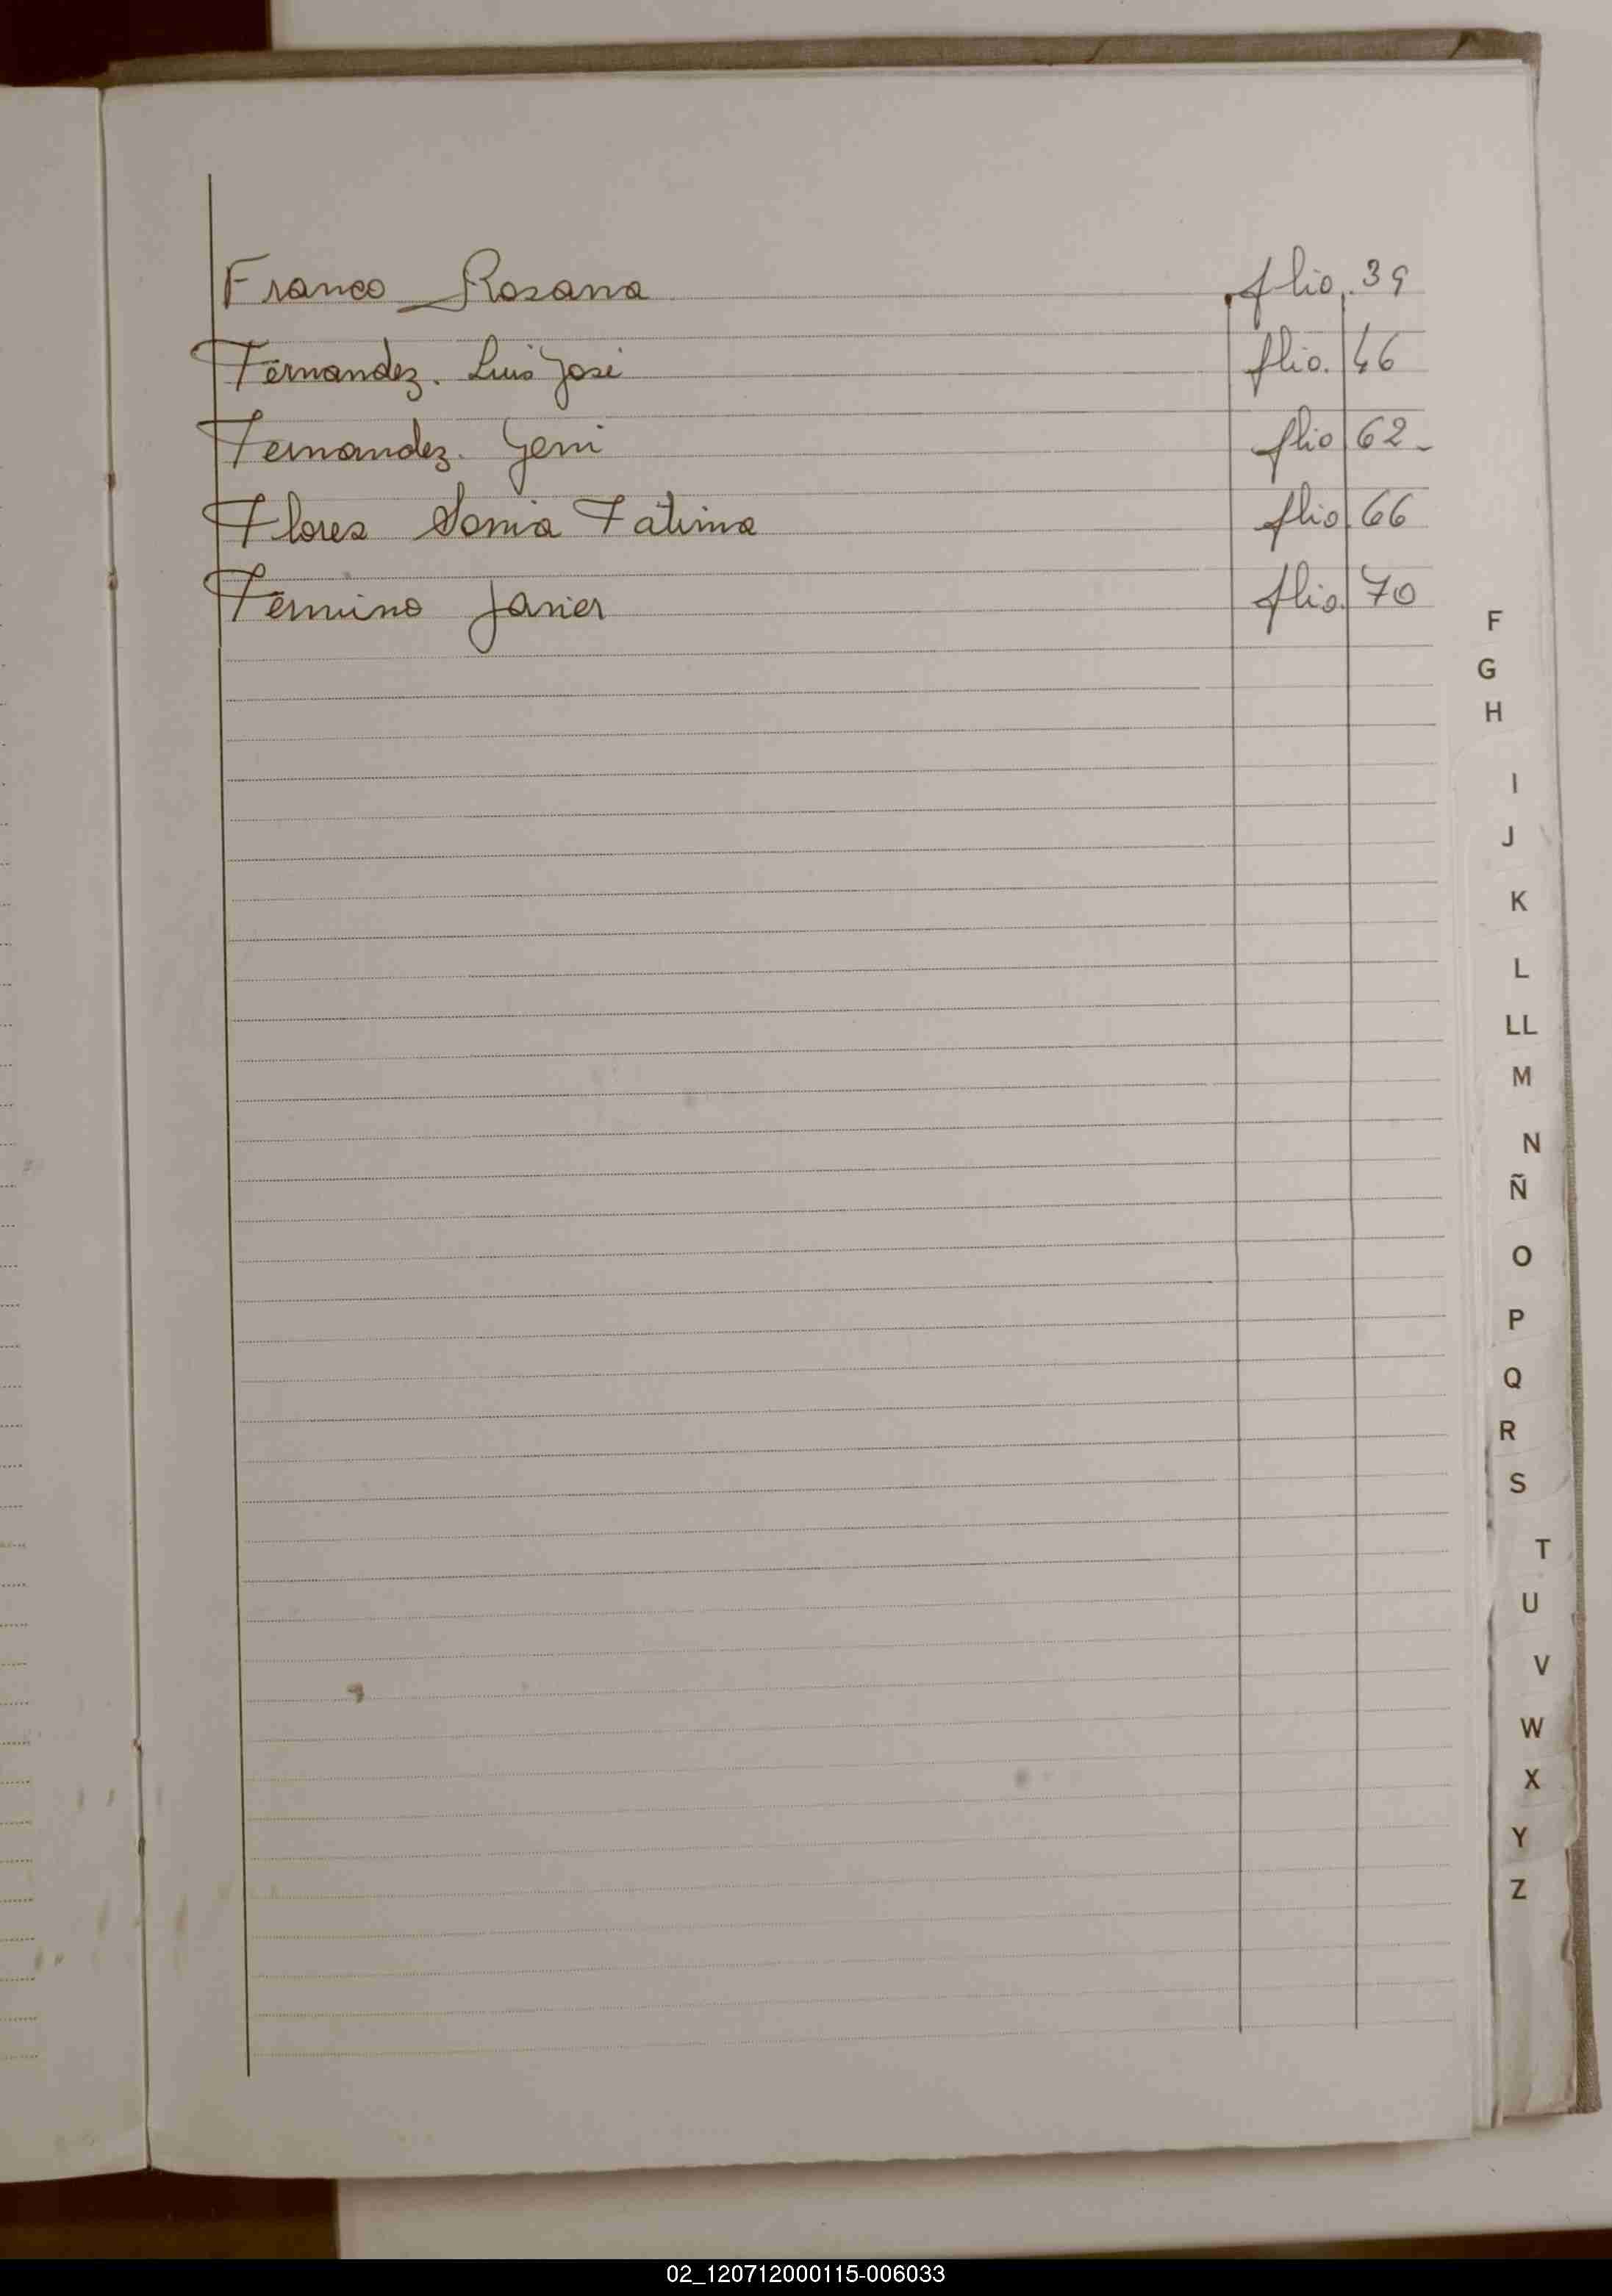 Franco Rosana flio. 39
Fernandez. Luis José flio. 46
Fernandez. Yeni flio 62
Flores Sonia Fatima flio. 66
Fermino Javier flio. 70
F
G
H
I
J
K
L
LL
M
N
Ñ
O
P
Q
R
S
T
U
V
W
X
Y
Z
02_120712000115-006033